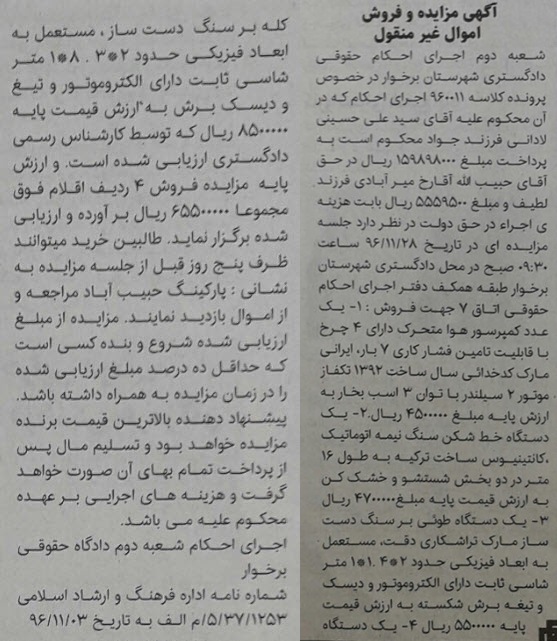 آگهی مزایده و فروش
اموال غیر منقول
شعبه دوم اجرای احکام حقوقی
دادگستری شهرستان برخوار در خصوص
پرونده کلاسه ۹۶۰۰۱۱ اجرای احکام که در
آن محکوم علیه آقای سید علی حسینی
لادانی فرزند جواد محکوم است به
پرداخت مبلغ ۱۵۹۸۹۸۰۰۰ ریال در حق
آقای حبیب الله آقارخ میر آبادی فرزند
لطیف و مبلغ ۵۵۵۹۵۰۰ ریال بابت هزینه
ی اجراء در حق دولت در نظر دارد جلسه
مزایده ای در تاریخ ۹۶/۱۱/۲۸ ساعت
۰۹:۳۰ صبح در محل دادگستری شهرستان
برخوار طبقه همکف دفتر اجرای احکام
حقوقی اتاق ۷ جهت فروش : ۱- یک
عدد کمپرسور هوا متحرک دارای ۴ چرخ
با قابلیت تامین فشار کاری ۷ بار، ایرانی
مارک کدخدائی سال ساخت ۱۳۹۲ تکفاز
موتور ۲ سیلندر با توان ۳ اسب بخار به
ارزش پایه مبلغ ۴۵۰۰۰۰۰ ریال.۲- یک
دستگاه خط شکن سنگ نیمه اتوماتیک
،کانتینیوس ساخت ترکیه به طول ۱۶
متر در دو بخش شستشو و خشک کن
به ارزش قیمت پایه مبلغ۴۷۰۰۰۰۰۰ ریال
۳- یک دستگاه طوئی بر سنگ دست
ساز مارک تراشکاری دقت، مستعمل
به ابعاد فیزیکی حدود ۲*۴ .۱*۱ متر
شاسی ثابت دارای الکتروموتور و دیسک
و تیغه برش شکسته به ارزش قیمت
پایه ۵۵۰۰۰۰۰ ریال ۴- یک دستگاه
کله بر سنگ دست ساز ، مستعمل به
ابعاد فیزیکی حدود ۲*۳ . ۸*۱ متر
شاسی ثابت دارای الکتروموتور و تیغ
و دیسک برش به ارزش قیمت پایه
۸۵۰۰۰۰۰ ریال که توسط کارشناس رسمی
دادگستری ارزیابی شده است. و ارزش
پایه مزایده فروش ۴ ردیف اقلام فوق
مجموعا ۶۵۵۰۰۰۰۰ ریال بر آورده و ارزیابی
شده برگزار نماید. طالبین خرید میتوانند
ظرف پنج روز قبل از جلسه مزایده به
نشانی : پارکینگ حبیب آباد مراجعه و
از اموال بازدید نمایند. مزایده از مبلغ
ارزیابی شده شروع و بنده کسی است
که حداقل ده درصد مبلغ ارزیابی شده
را در زمان مزایده به همراه داشته باشد.
پیشنهاد دهنده بالاترین قیمت برنده
مزایده خواهد بود و تسلیم مال پس
از پرداخت تمام بهای آن صورت خواهد
گرفت و هزینه های اجرایی بر عهده
محکوم علیه می باشد.
اجرای احکام شعبه دوم دادگاه حقوقی
برخوار
شماره نامه اداره فرهنگ و ارشاد اسلامی
۵/۳۷/۱۲۵۳/م الف به تاریخ ۹۶/۱۱/۰۳